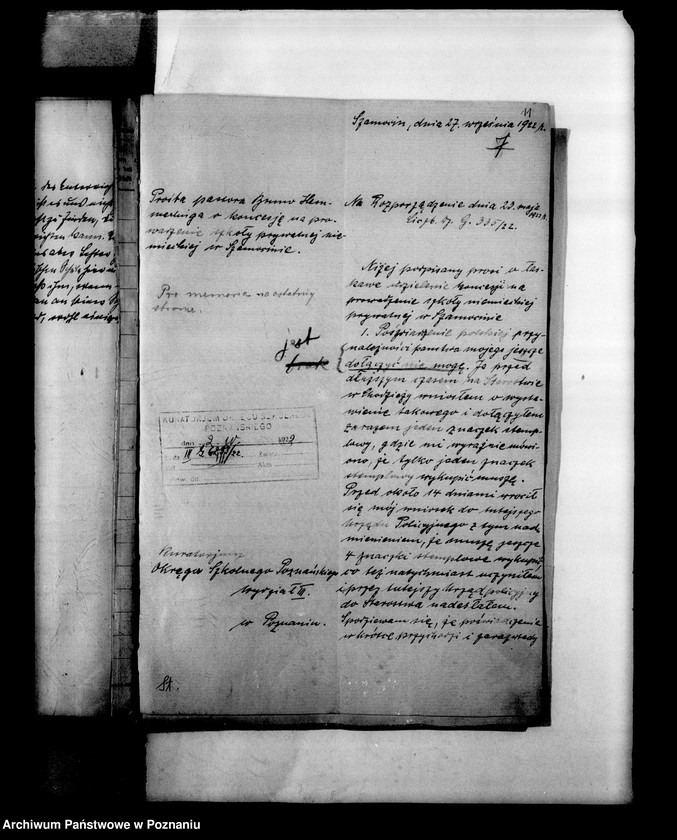 11
Szamocin, dnia 27. września 1922 r.
7
Prośba pastora Bruno Hem-
merlinga o koncesję na pro-
wadzenie szkoły prywatnej nie-
mieckiej w Szamocinie.
Pro memoria na ostatniej
stronie.
jest
brak
KURATORJUM OKRĘGU SZKOLNEGO
POZNAŃSKIEGO
dnia
Kuratorjum
Okręgu Szkolnego Poznańskiego
Wydział III.
w Poznaniu.
St.
Na Rozporządzenie dnia 23. maja
1922 r.
Liczb. Dz. G. 335/22.
Niżej podpisany prosi o łas-
kawe udzielenie koncesji na
prowadzenie szkoły niemieckiej
prywatnej w Szamocinie
1. Poświadczenie polskiej przy-
należności państwa mojego jeszcze
dołączyć nie mogę. Ja przed
dłuższym czasem na Starostwie
w Chodzieży wniosłem o wysta-
wienie takowego i dołączyłem
zarazem jeden znaczek stemp-
lowy, gdzie mi wyraźnie mówi-
ono, że tylko jeden znaczek
stemplowy wykupić muszę.
Przed około 14 dniami wrócił
się mój wniosek do tutejszego
Urzędu Policyjnego z tym nad-
mienieniem, że muszę jeszcze
4 znaczki stemplowe wykupić,
co też natychmiast uczyniłem
i przez tutejszy Urząd policyjny
do Starostwa nadesłałem.
Spodziewam się, że poświadczenie
w krótce przychodzi i zaraz wtedy
Archiwum Państwowe w Poznaniu